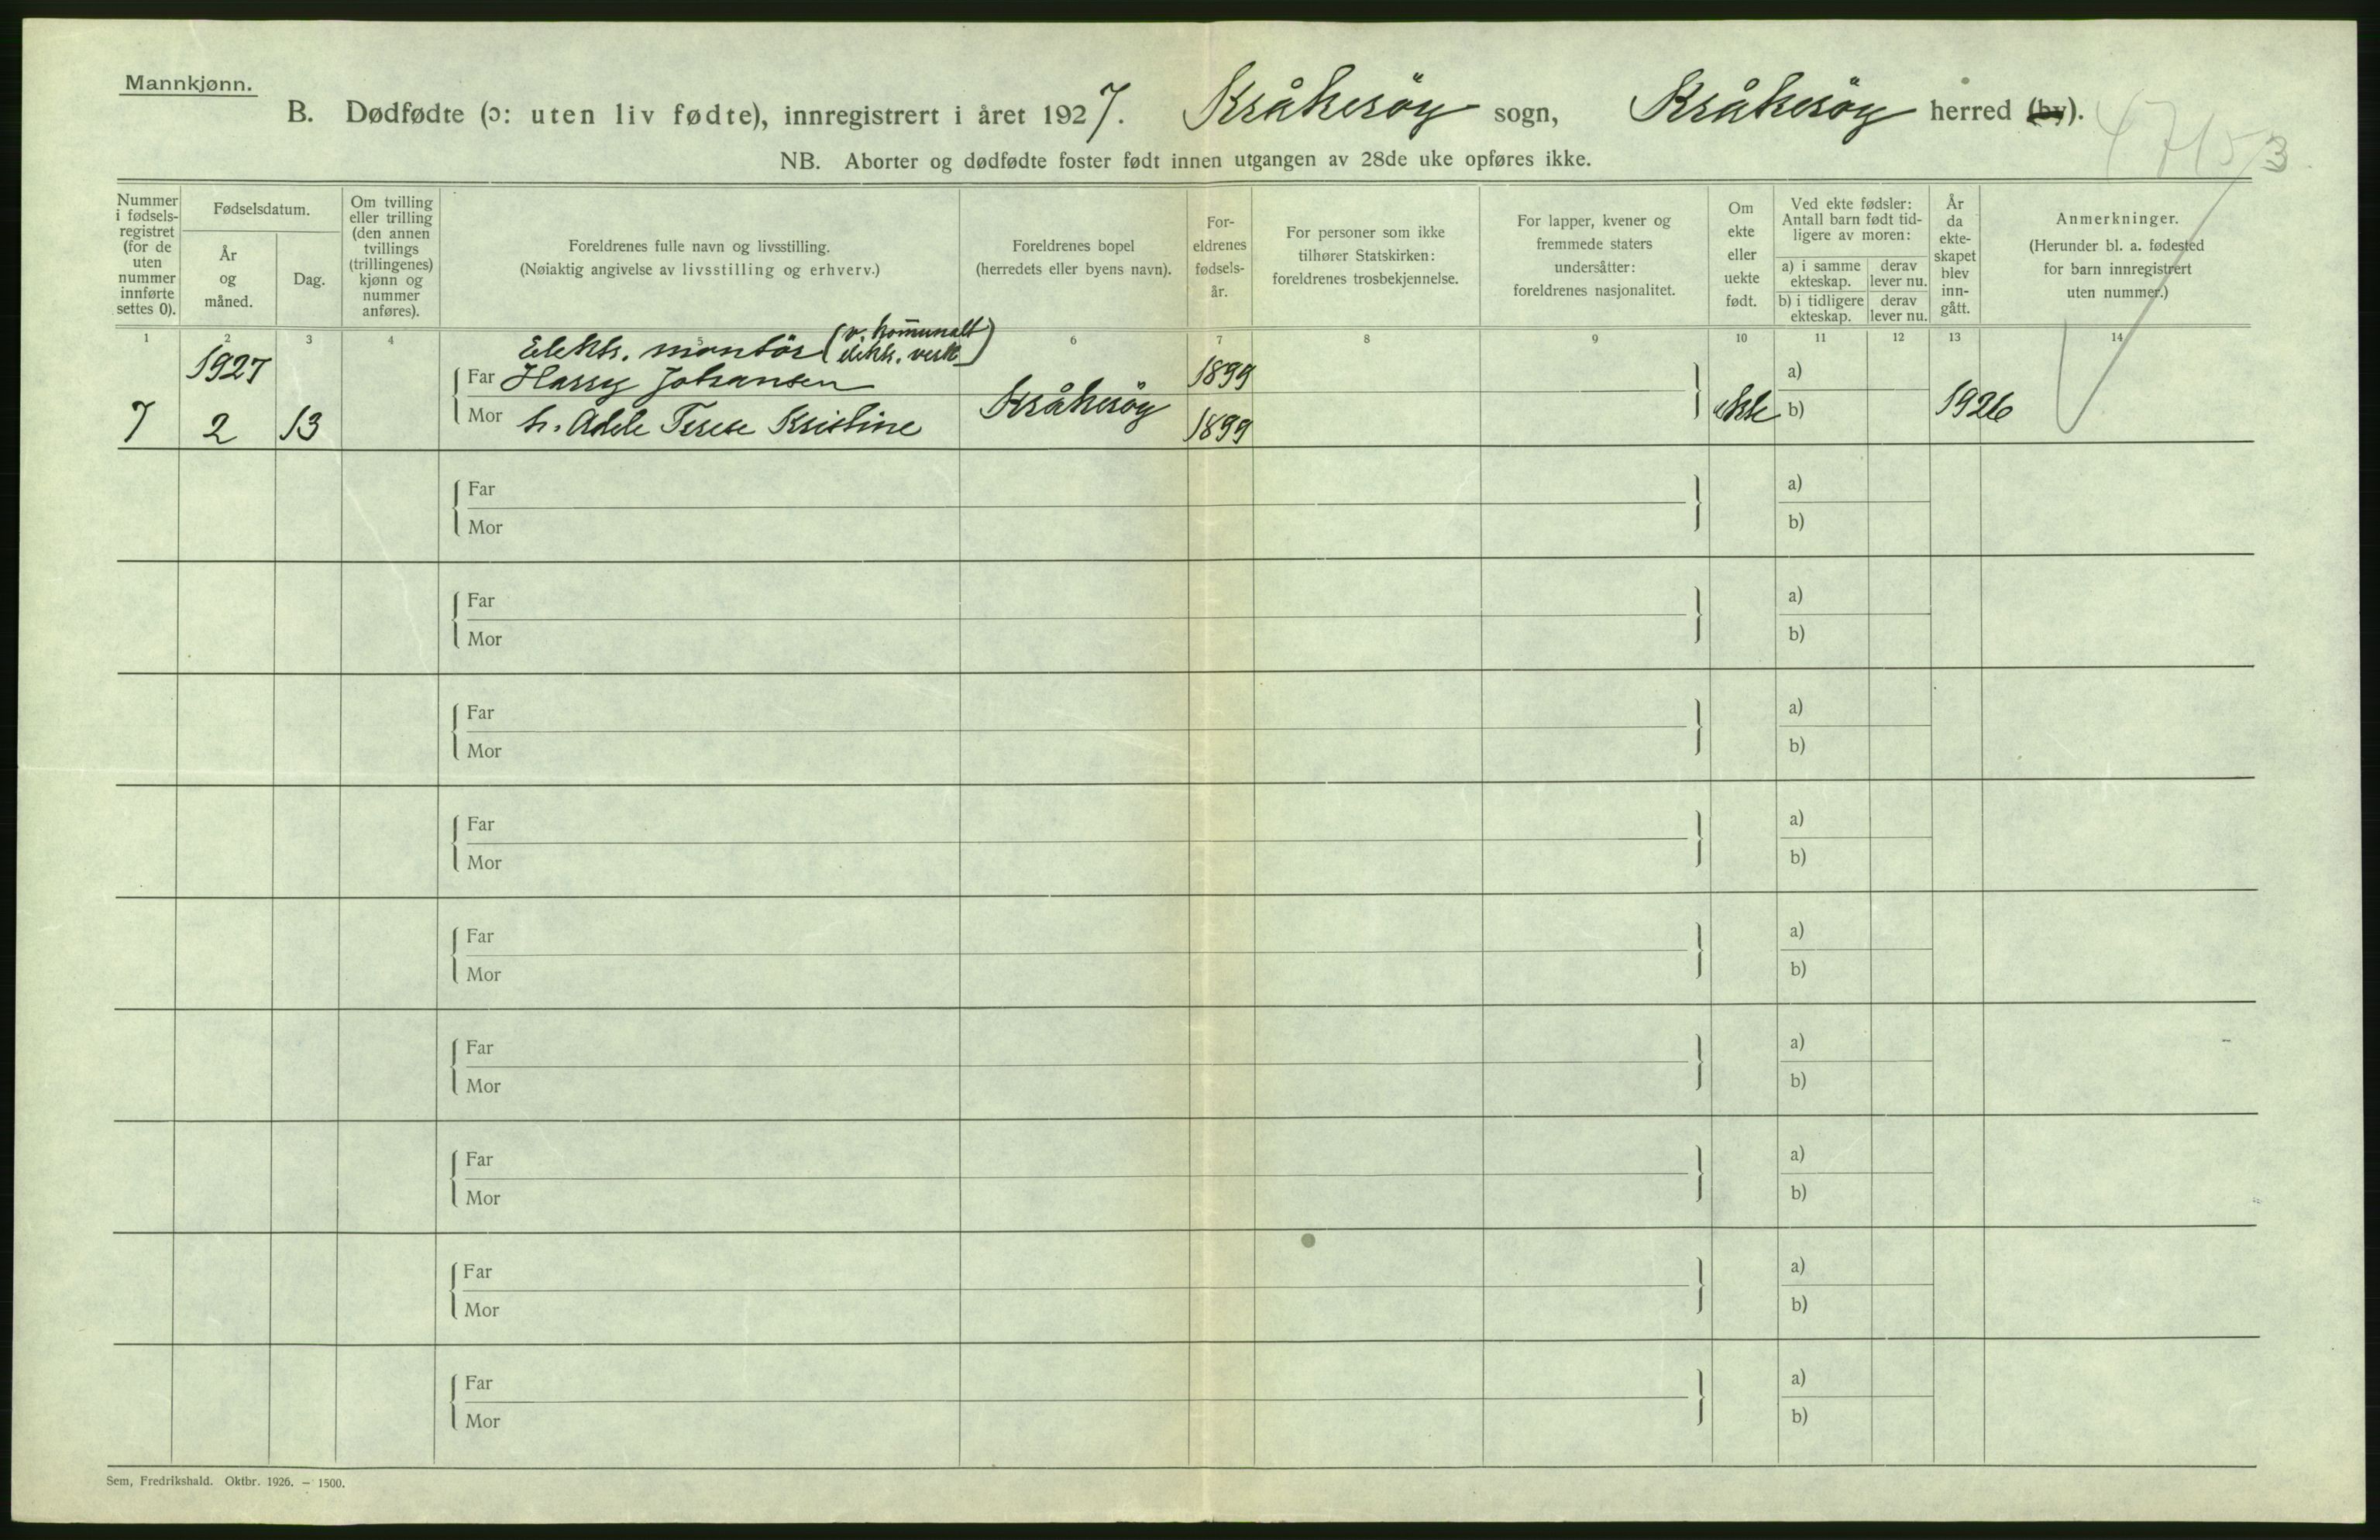 Mannkjønn.
B. Dødfødte (ɔ: uten liv fødte), innregistrert i året 1927. Kråkeröy sogn, Kråkeröy herred (by).
NB. Aborter og dødfødte foster født innen utgangen av 28de uke opføres ikke.
Nummer i fødsels-registret (for de uten nummer innførte settes 0).
Fødselsdatum.
År og måned.
Dag.
Om tvilling eller trilling (den annen tvillings (trillingenes) kjønn og nummer anføres).
Foreldrenes fulle navn og livsstilling.
(Nøiaktig angivelse av livsstilling og erhverv.)
Foreldrenes bopel
(herredets eller byens navn).
For-eldrenes fødsels-år.
For personer som ikke tilhører Statskirken: foreldrenes trosbekjennelse.
For lapper, kvener og fremmede staters undersåtter: foreldrenes nasjonalitet.
Om ekte eller uekte født.
Ved ekte fødsler: Antall barn født tid-ligere av moren:
a) i samme ekteskap. derav lever nu.
b) i tidligere ekteskap. derav lever nu.
År da ekte-skapet blev inn-gått.
Anmerkninger.
(Herunder bl. a. fødested for barn innregistrert uten nummer.)
1 2 3 4 5 6 7 8 9 10 11 12 13 14
1927 Elektr. montör (v. kommunalt elektr. verk)
Far Harry Johansen 1899 a)
7 2 13 Mor h. Adele Terese Kristine Kråkeröy 1899 ekte b) 1926
Far a)
Mor b)
Far a)
Mor b)
Far a)
Mor b)
Far a)
Mor b)
Far a)
Mor b)
Far a)
Mor b)
Far a)
Mor b)
Far a)
Mor b)
Far a)
Mor b)
Sem, Fredrikshald. Oktbr. 1926. — 1500.